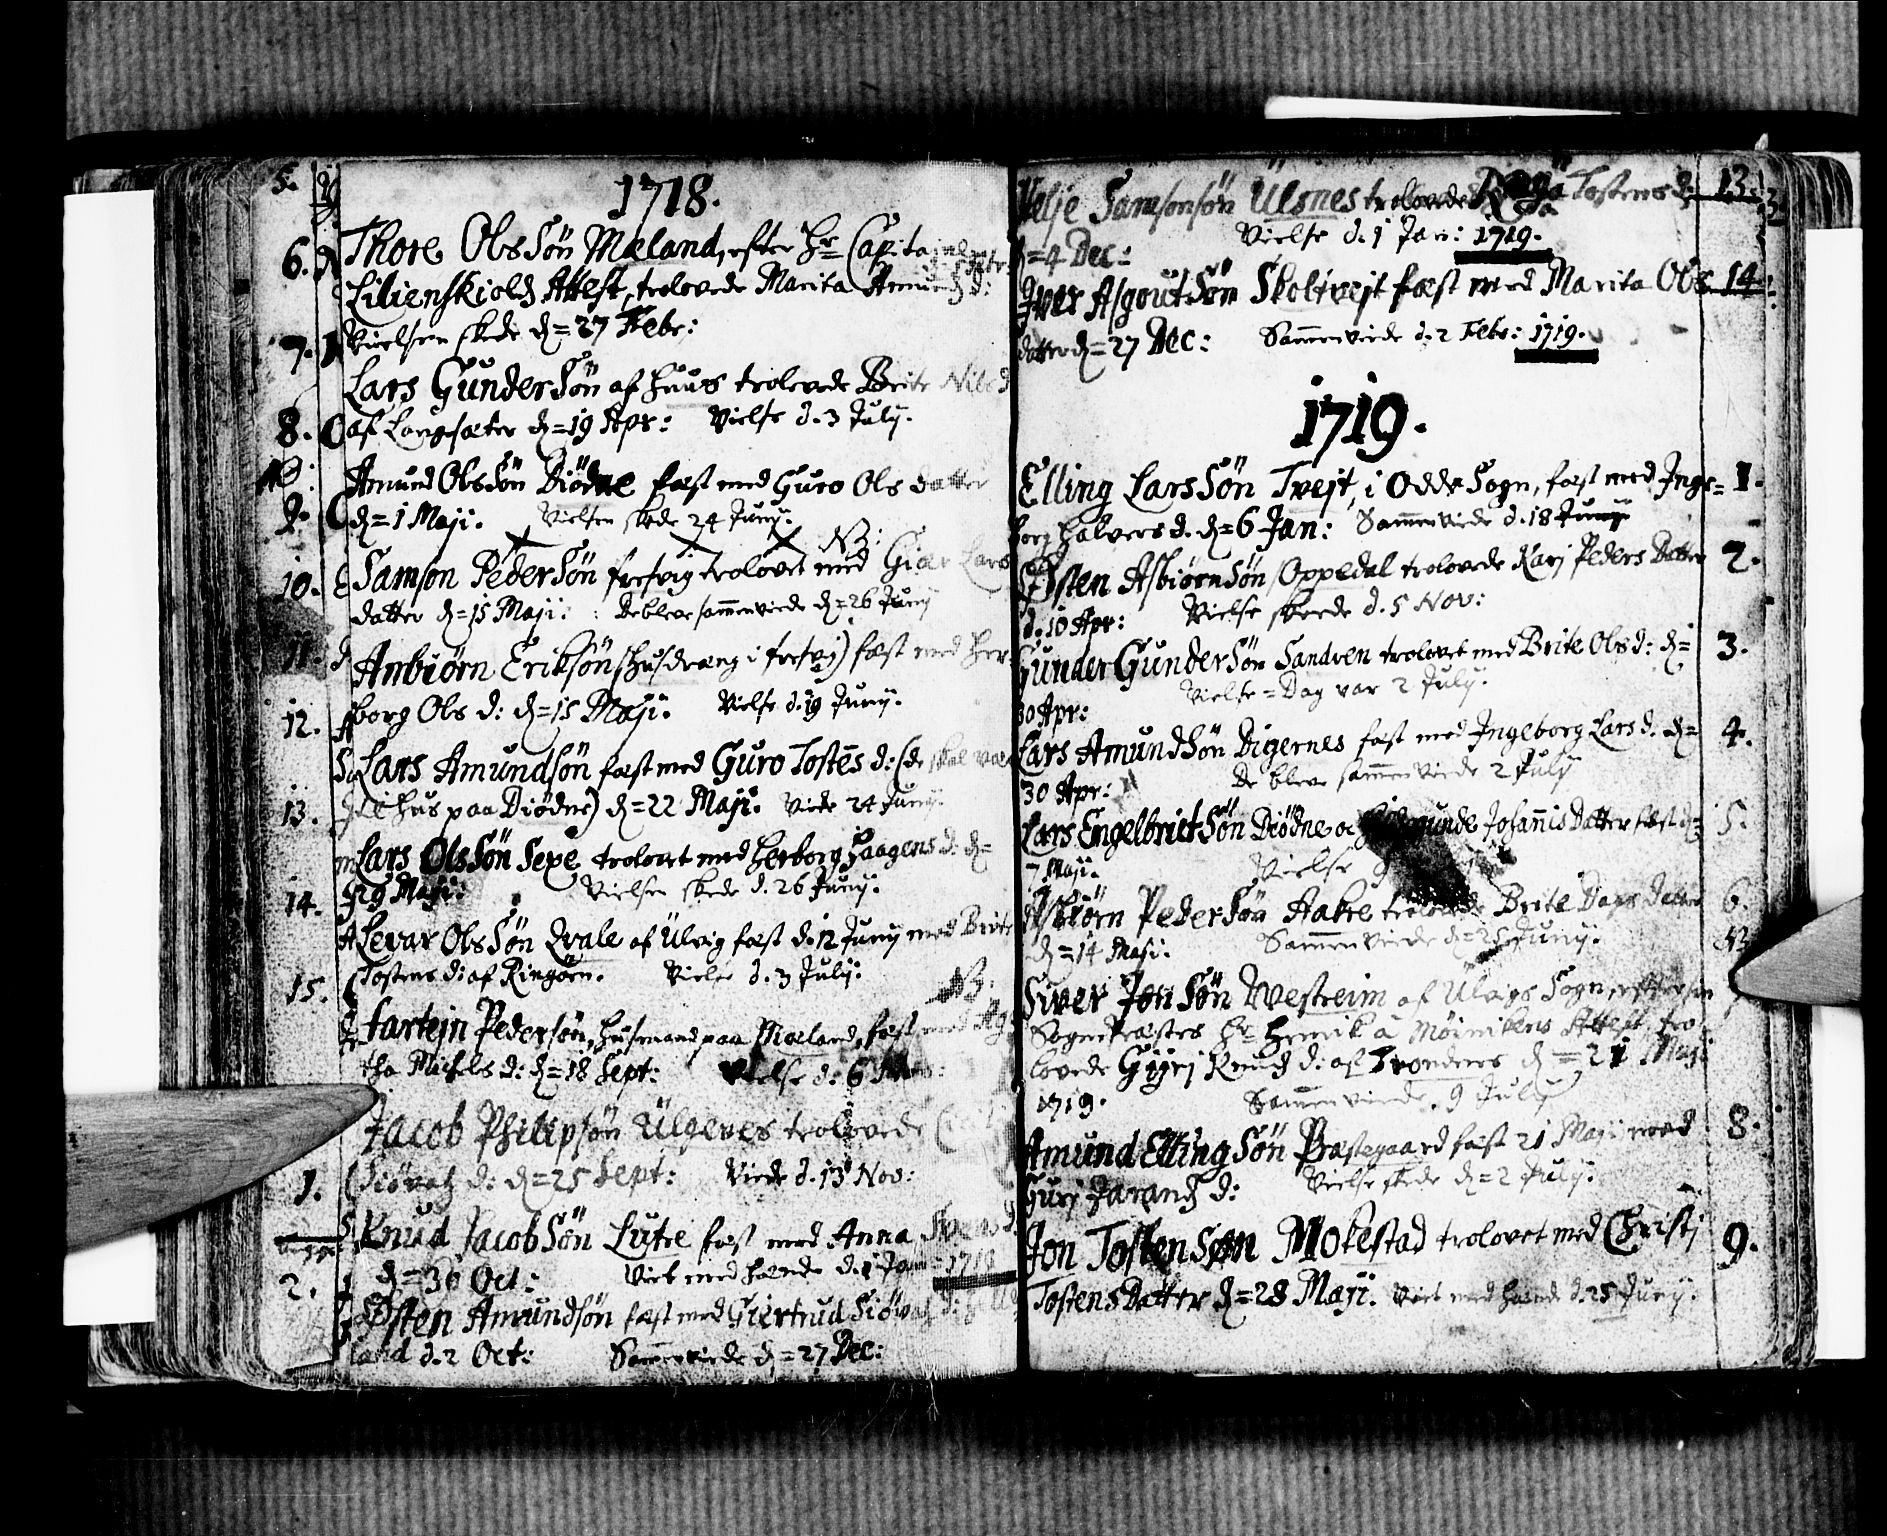 1718.
Thore Ols Sön Mæland, efter Hr Capita
Lilienskiolds Attest, trolovede Marita Amunds d:
Vielsen skede d=27 Febr:
Lars Gunder Sön af Huus trolovede Brite Nils d
af Langesæter d=19 Apr: Vielse d. 3 July.
Amund Ols Sön Diödne fæst med Guro Ols datter
d=1 Maji. Vielsen skede 24 Juny.
NB:
Samson Peder Sön fresvig trolovet med Giær Lars
datter d=15 Maji: De bleve sammenviede d=26 Juny
Anbiörn Erikssön (husdræng i fresvig) fæst med Her
borg Ols d: d=15 Maji. Vielse d. 19 Juny.
Lars Amundsön fæst med Guro Tostēs d: (de skal væ
til huus paa Diödne) d=22 Maji. Viede 24 Juny.
Lars Ols Sön Sexe trolovet med Herborg Haagens d: d=
29 Maji: Vielsen skede d. 26 Juny.
Levar Ols Sön Qvale af Ulvig fæst d. 12 Juny med Brite
Tostens d: af Ringöen. Vielse d. 3 July:
NB:
Tartejn Pedersön, husmand paa Mæland, fæst med Ag
tha Michels d: d=18 Sept: Vielse d. 6
Jacob Philipsön Ulgenes trolovede
Siövatz d: d=25 Sept: Viede d. 13 Nov:
Knud Jacob Sön Lutre fæst med Anna Svens d.
d=30 Oct: Viet med hende d. 1 Jan= 1719
Østen Amundsön fæst med Giertrud Siövatz d:
land d. 2 Oct: Sammenviede d=27 Dec:
5.
6.
7.
8.
NB:
9.
10.
11.
12.
13.
14.
15.
1.
2.
Velje Samsonsön Ulsnes trolovede Tostens d. 13.
d=4 Dec: Vielse d. 1 Jan: 1719.
Iver Asgout Sön Skoltvejt fæst med Marita Ols 14.
datter d=27 Dec: Sammenviede d. 2 Febr: 1719.
1719.
Elling Lars Sön Tvejt, i Odde Sogn, fæst med Inge= 1.
borg Halvors d. d=6 Jan: Sammenviede d. 18 Juny
Østen Asbiörn Sön Oppedal trolovede Karj Peders Datter 2.
d. 10 Apr: Vielse skeede d. 5 Nov:
Gunder Gunder Sön Sandven trolovet med Brite Ols d: d= 3.
30 Apr: Vielse=Dag var 2 July.
Lars Amund Sön Digernes fæst med Ingeborg Lars d. d= 4.
30 Apr: De bleve sammenviede 2 July
Lars Engelbrict Sön Diödne oc Johannis Datter fæst d= 5.
7 Maji. Vielse
Asbiörn Peder Sön Aakre trolovede Brite Dags Datter 6.
d=14 Maji: Sammenviede d=25 Juny. NB
Siver Jon Sön Westreim af Ulvigs Sogn, efter sin
Sogne Præstes Hr Henrik à Möinikens Attest, tro=
lovede Gyrj Knuds d: af d=21 Maji
1719. Sammenviede. 9 July
Amund Elling Sön Præstegaard fæst 21 Maji med 8.
Gurj Jarands d: Vielse skede d=2 July.
Jon Tosten Søn Mokestad trolovet med Christj 9.
Tostens Datter d=28 Maji. Viet med hænde d. 25 Juny.